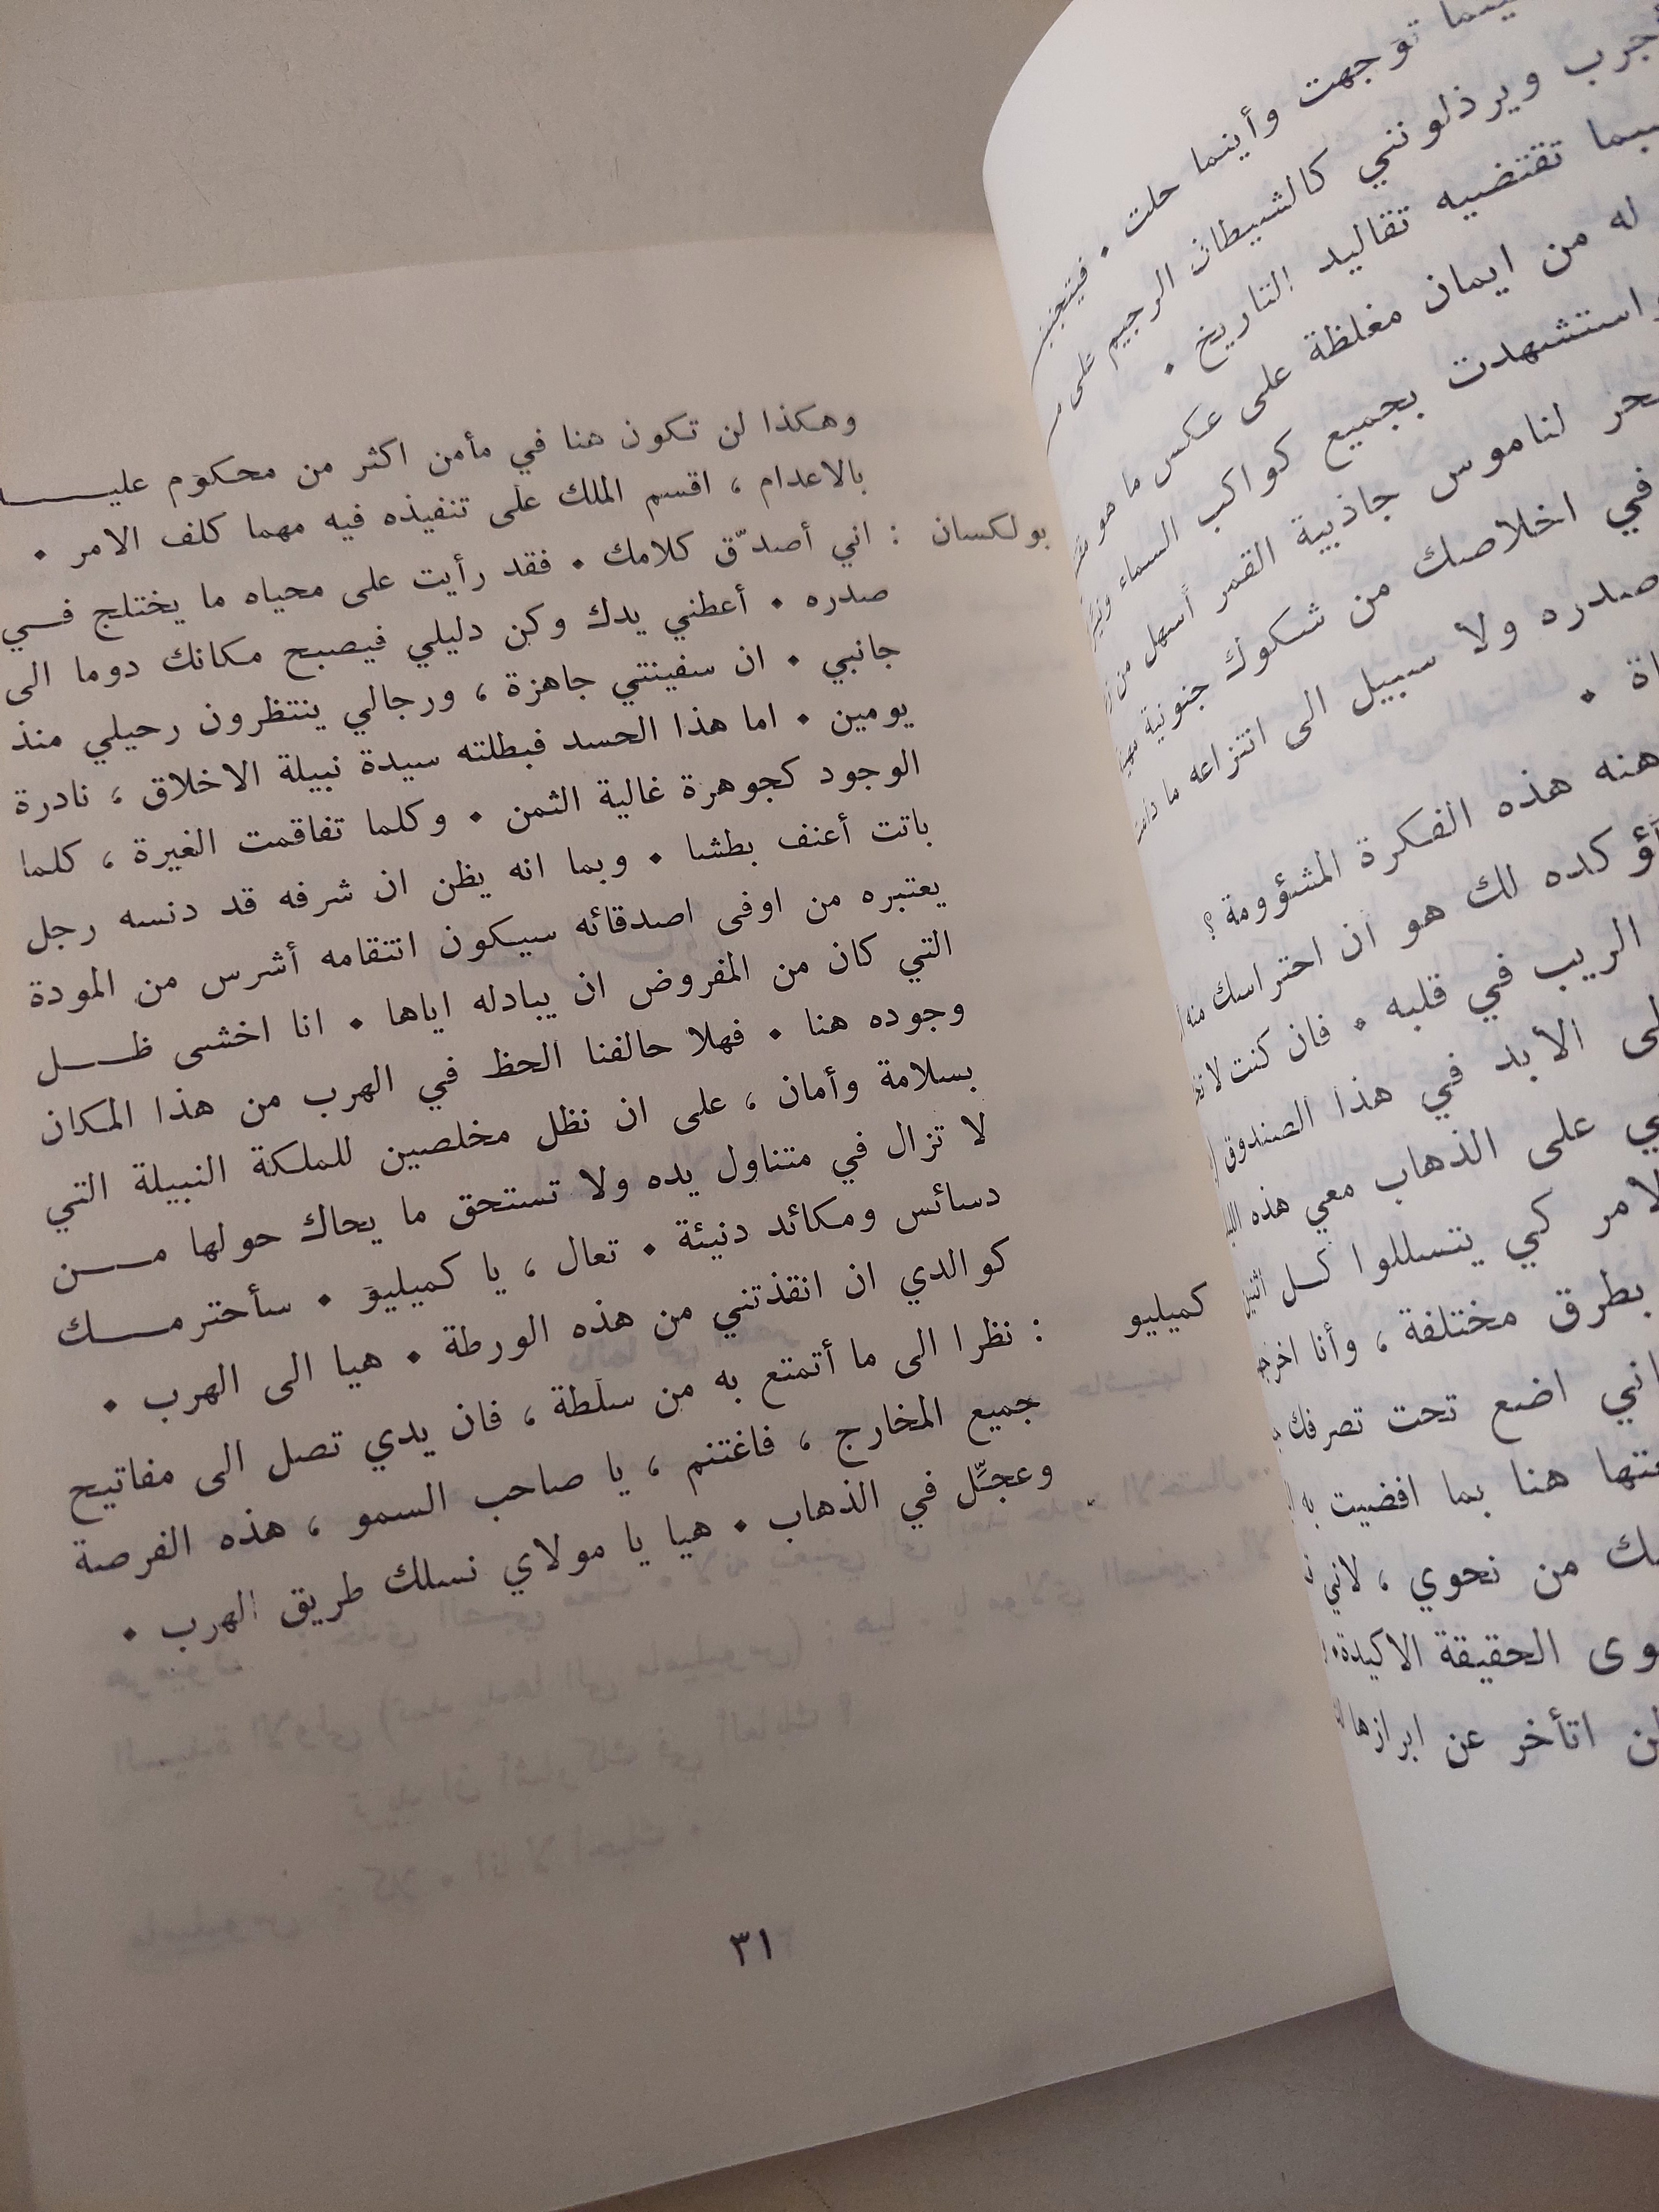 توجهت وأينما حلت . فيتجنب
أجرب ويرذلونني كالشيطان الرجيم على
تقتضيه تقاليد التاريخ .
له من ايمان مغلظة على عكس ما هو
واستشهدت بجميع كواكب السماء
لناموس جاذبية القمر أسهل من
في اخلاصك من شكوك جنونية
صدره ولا سبيل الى انتزاعه ما دامت
هذه الفكرة المشؤومة ؟
أؤكده لك هو ان احتراسك منه
الريب في قلبه . فان كنت لا
الابد في هذا الصندوق
على الذهاب معي هذه
كي يتسللوا كل اثنين
بطرق مختلفة ، وأنا
اني اضع تحت تصرفك
هنا بما افضيت به
من نحوي ، لاني
الحقيقة الاكيدة .
اتأخر عن ابرازها
وهكذا لن تكون هنا في مأمن اكثر من محكوم عليـــــه
بالاعدام ، اقسم الملك على تنفيذه فيه مهما كلف الامر .
بولكسان : اني أصدّق كلامك . فقد رأيت على محياه ما يختلج فـــي
صدره . أعطني يدك وكن دليلي فيصبح مكانك دوما الى
جانبي . ان سفينتي جاهزة ، ورجالي ينتظرون رحيلي منذ
يومين . اما هذا الحسد فبطلته سيدة نبيلة الاخلاق ، نادرة
الوجود كجوهرة غالية الثمن . وكلما تفاقمت الغيرة ، كلما
باتت أعنف بطشا . وبما انه يظن ان شرفه قد دنسه رجل
يعتبره من اوفى اصدقائه سيكون انتقامه أشرس من المودة
التي كان من المفروض ان يبادله اياها . انا اخشى ظـــل
وجوده هنا . فهلا حالفنا الحظ في الهرب من هذا المكان
بسلامة وأمان ، على ان نظل مخلصين للملكة النبيلة التي
لا تزال في متناول يده ولا تستحق ما يحاك حولها مـــن
دسائس ومكائد دنيئة . تعال ، يا كميليو . سأحترمـــك
كوالدي ان انقذتني من هذه الورطة . هيا الى الهرب .
كميليو : نظرا الى ما أتمتع به من سلطة ، فان يدي تصل الى مفاتيح
جميع المخارج ، فاغتنم ، يا صاحب السمو ، هذه الفرصة
وعجّل في الذهاب . هيا يا مولاي نسلك طريق الهرب .
٣١